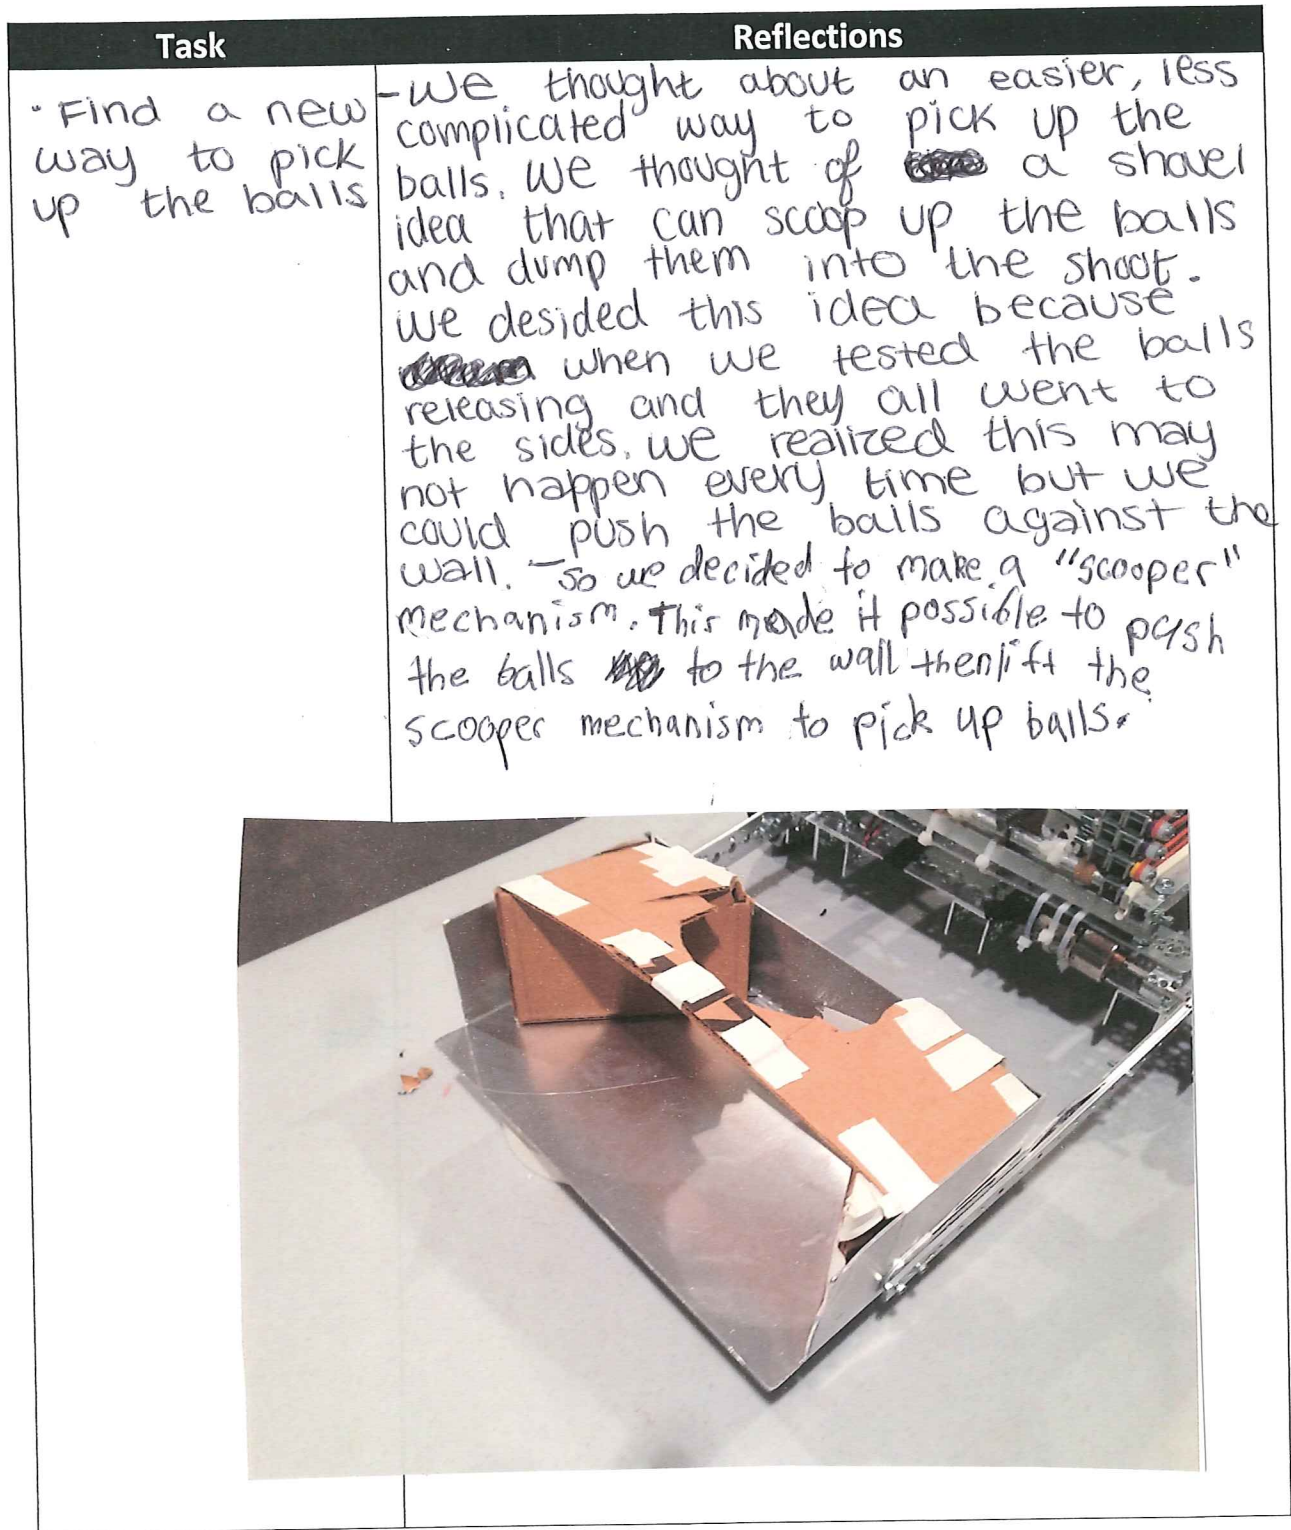 Task
Reflections
• Find a new
way to pick
up the balls
- We thought about an easier, less
complicated way to pick up the
balls. We thought of a shovel
idea that can scoop up the balls
and dump them into the shoot.
We desided this idea because
when we tested the balls
releasing and they all went to
the sides. We realized this may
not happen every time but we
could push the balls against the
wall. - So we decided to make a "scooper"
mechanism. This made it possible to push
the balls to the wall then lift the
scooper mechanism to pick up balls.